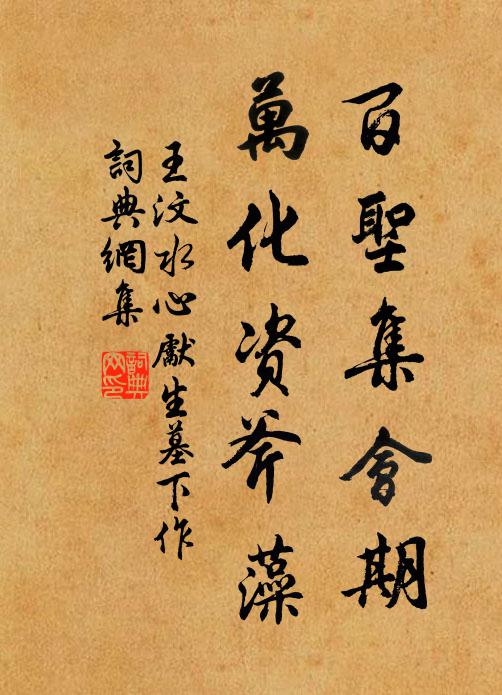 百聖集會期
萬化資斧藻
王汶水心獻生墓下作
詞典網集
詞典網印